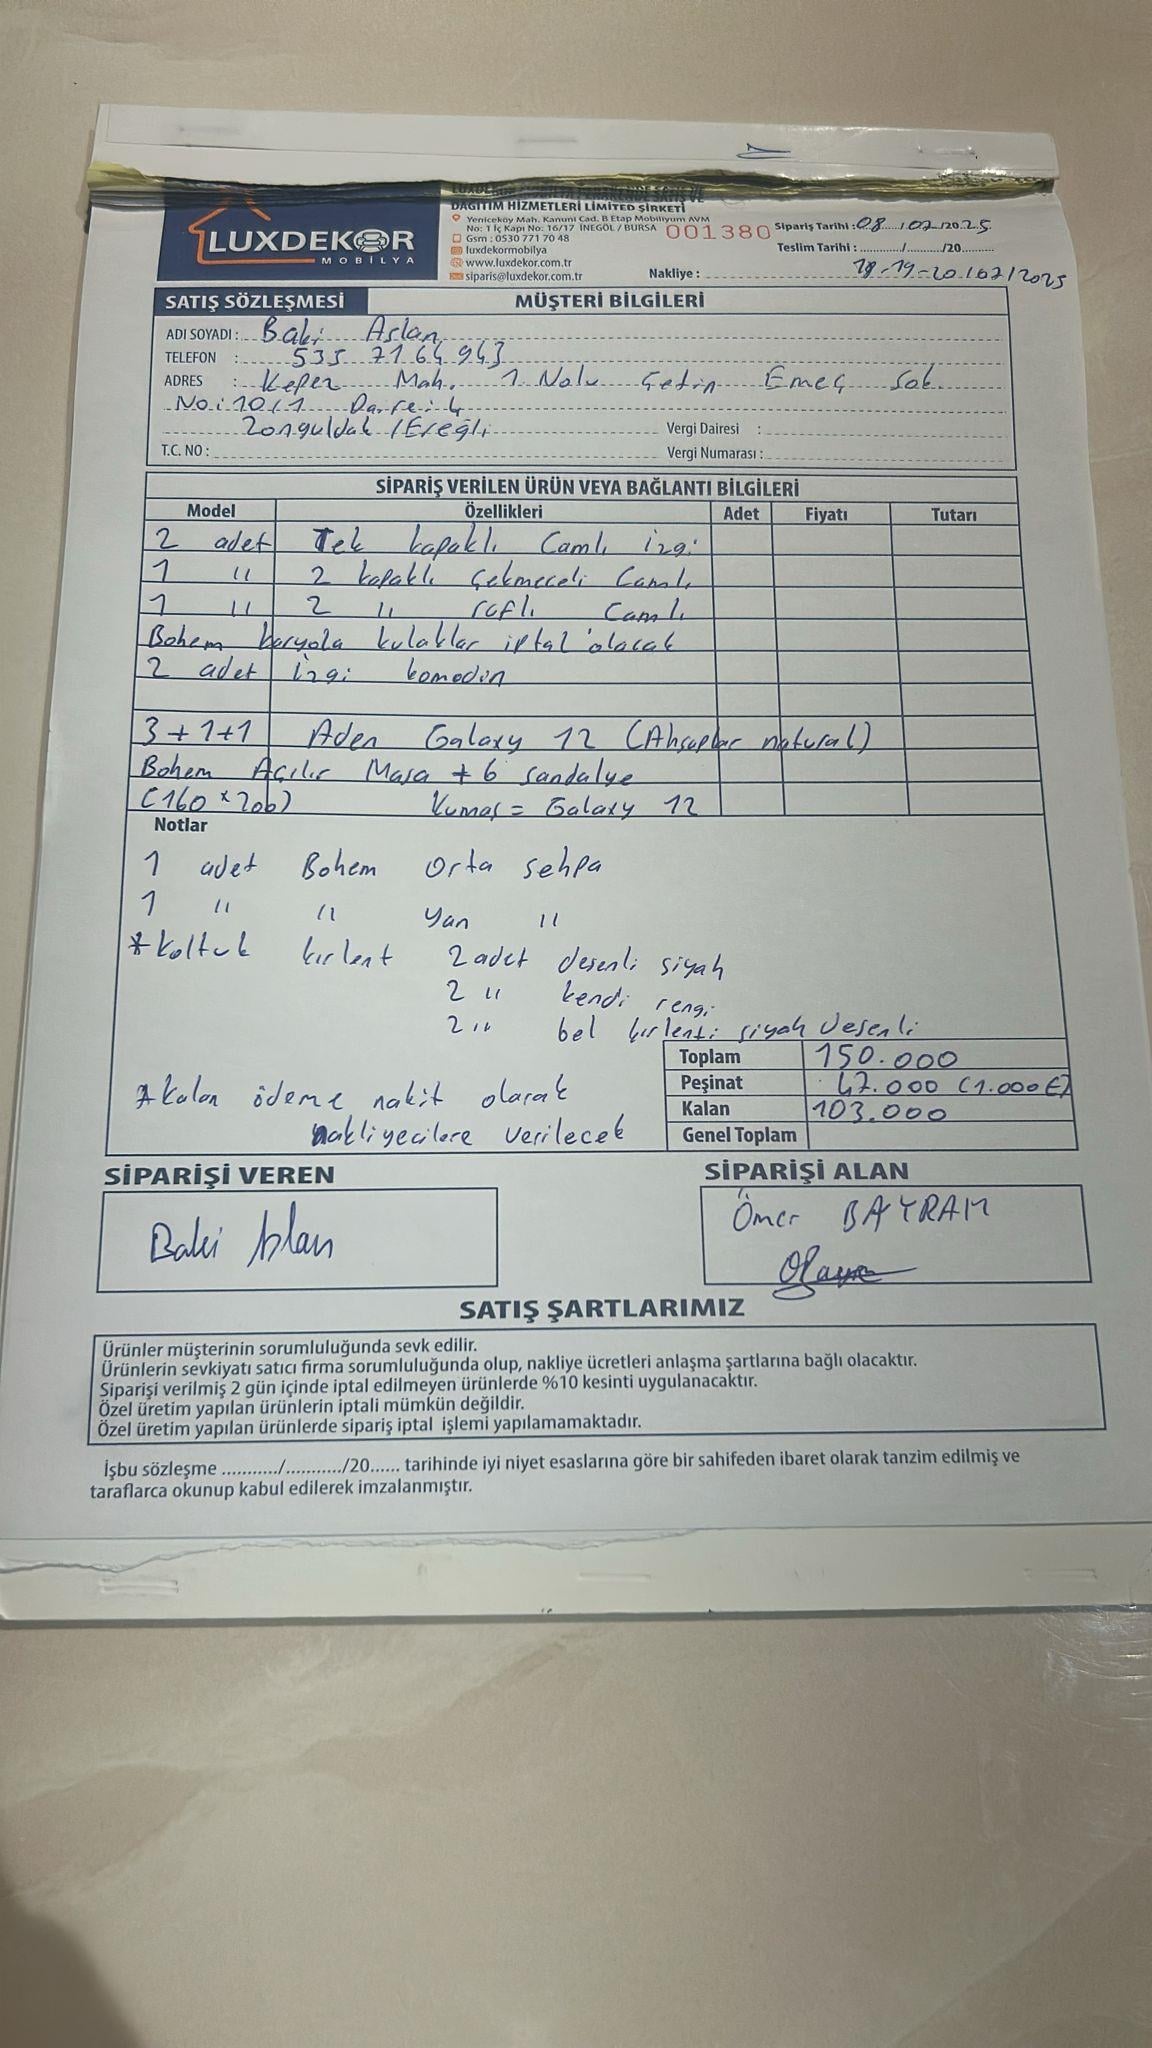 LUXDEKOR
MOBİLYA
DAĞITIM HİZMETLERİ LİMİTED ŞİRKETİ
Yeniceköy Mah. Kanuni Cad. B Etap Mobiliyum AVM
No: 1 İç Kapı No: 16/17 İNEGÖL / BURSA
Gsm : 0530 771 70 48
luxdekormobilya
www.luxdekor.com.tr
siparis@luxdekor.com.tr
001380
Sipariş Tarihi : 08 / 02 /2025
Teslim Tarihi : ........../........../20..........
Nakliye : 18-19-20/02/2025
SATIŞ SÖZLEŞMESİ
MÜŞTERİ BİLGİLERİ
ADI SOYADI : Baki Aslan
TELEFON : 535 7164943
ADRES : Kepez Mah. 1 Nolu Çetin Emeç Sok.
No: 10/1 Daire: 4
Zonguldak / Ereğli
Vergi Dairesi :
T.C. NO :
Vergi Numarası :
SİPARİŞ VERİLEN ÜRÜN VEYA BAĞLANTI BİLGİLERİ
Model Özellikleri Adet Fiyatı Tutarı
2 adet Tek kapaklı Camlı izgi
1 " 2 kapaklı Çekmeceli Camlı
1 " 2 " raflı Camlı
Bohem karyola kulaklar iptal olacak
2 adet izgi komodin
3+1+1 Aden Galaxy 12 (Ahşaplar natural)
Bohem Açılır Masa + 6 sandalye
(160 x 200) Kumaş = Galaxy 12
Notlar
1 adet Bohem Orta sehpa
1 " " Yan "
* Koltuk kırlent 2 adet desenli siyah
2 " kendi rengi
2 " bel kırlenti siyah desenli
Toplam 150.000
Peşinat 47.000 (1.000€)
Kalan 103.000
Genel Toplam
* Kalan ödeme nakit olarak
nakliyecilere verilecek
SİPARİŞİ VEREN
Baki Aslan
SİPARİŞİ ALAN
Ömer BAYRAM
SATIŞ ŞARTLARIMIZ
Ürünler müşterinin sorumluluğunda sevk edilir.
Ürünlerin sevkiyatı satıcı firma sorumluluğunda olup, nakliye ücretleri anlaşma şartlarına bağlı olacaktır.
Siparişi verilmiş 2 gün içinde iptal edilmeyen ürünlerde %10 kesinti uygulanacaktır.
Özel üretim yapılan ürünlerin iptali mümkün değildir.
Özel üretim yapılan ürünlerde sipariş iptal işlemi yapılamamaktadır.
İşbu sözleşme .........../.........../20...... tarihinde iyi niyet esaslarına göre bir sahifeden ibaret olarak tanzim edilmiş ve
taraflarca okunup kabul edilerek imzalanmıştır.